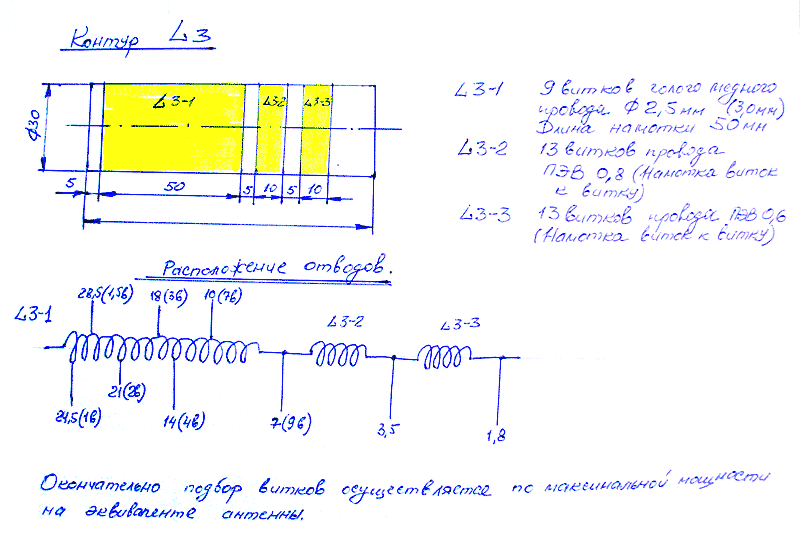 Контур L3
L3-1 L3-2 L3-3
Ф30
5 50 5 10 5 10
L3-1 9 витков голого медного
провода Ф 2,5мм (3,0мм)
Длина намотки 50мм
L3-2 13 витков провода
ПЭВ 0,8 (Намотка виток
к витку)
L3-3 13 витков провода ПЭВ 0,6
(Намотка виток к витку)
Расположение отводов.
28,5(1,5в) 18(3в) 10(7в)
L3-1 L3-2 L3-3
24,5(1в) 21(2в) 14(4в) 7(9в) 3,5 1,8
Окончательно подбор витков осуществляется по максимальной мощности
на эквиваленте антенны.